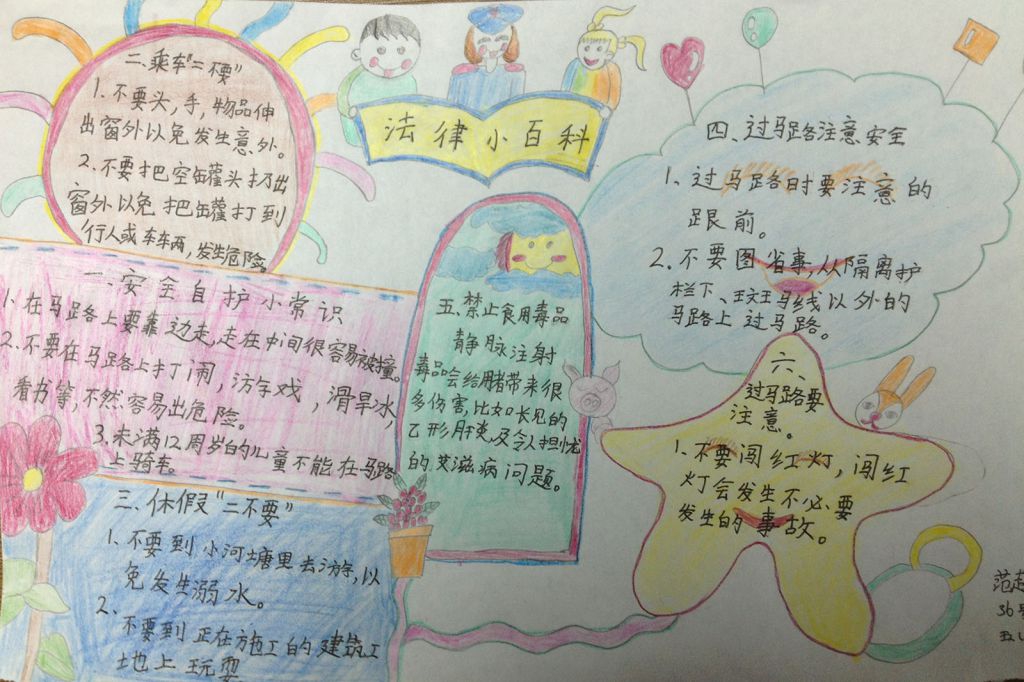 法律小百科
一.安全自护小常识
1.在马路上要靠边走,走在中间很容易被撞。
2.不要在马路上打闹,游戏,滑旱冰,
看书等,不然容易出危险。
3.未满12周岁的儿童不能在马路
上骑车。
二.乘车"二不要"
1.不要头,手,物品伸
出窗外以免发生意外。
2.不要把空罐头扔出
窗外以免把罐打到
行人或车车两,发生危险。
三.休假"二不要"
1、不要到小河塘里去游,以
免发生溺水。
2.不要到正在施工的建筑工
地上玩耍
四、过马路注意安全
1、过马路时要注意的
跟前。
2.不要图省事,从隔离护
栏下、斑马线以外的
马路上过马路。
五.禁止食用毒品
静脉注射
毒品会给带来很
多伤害,比如长见的
乙形肝炎及令人担忧
的艾滋病问题。
六、
过马路要
注意。
1.不要闯红灯,闯红
灯会发生不必要
发生的事故。
范
36号
五